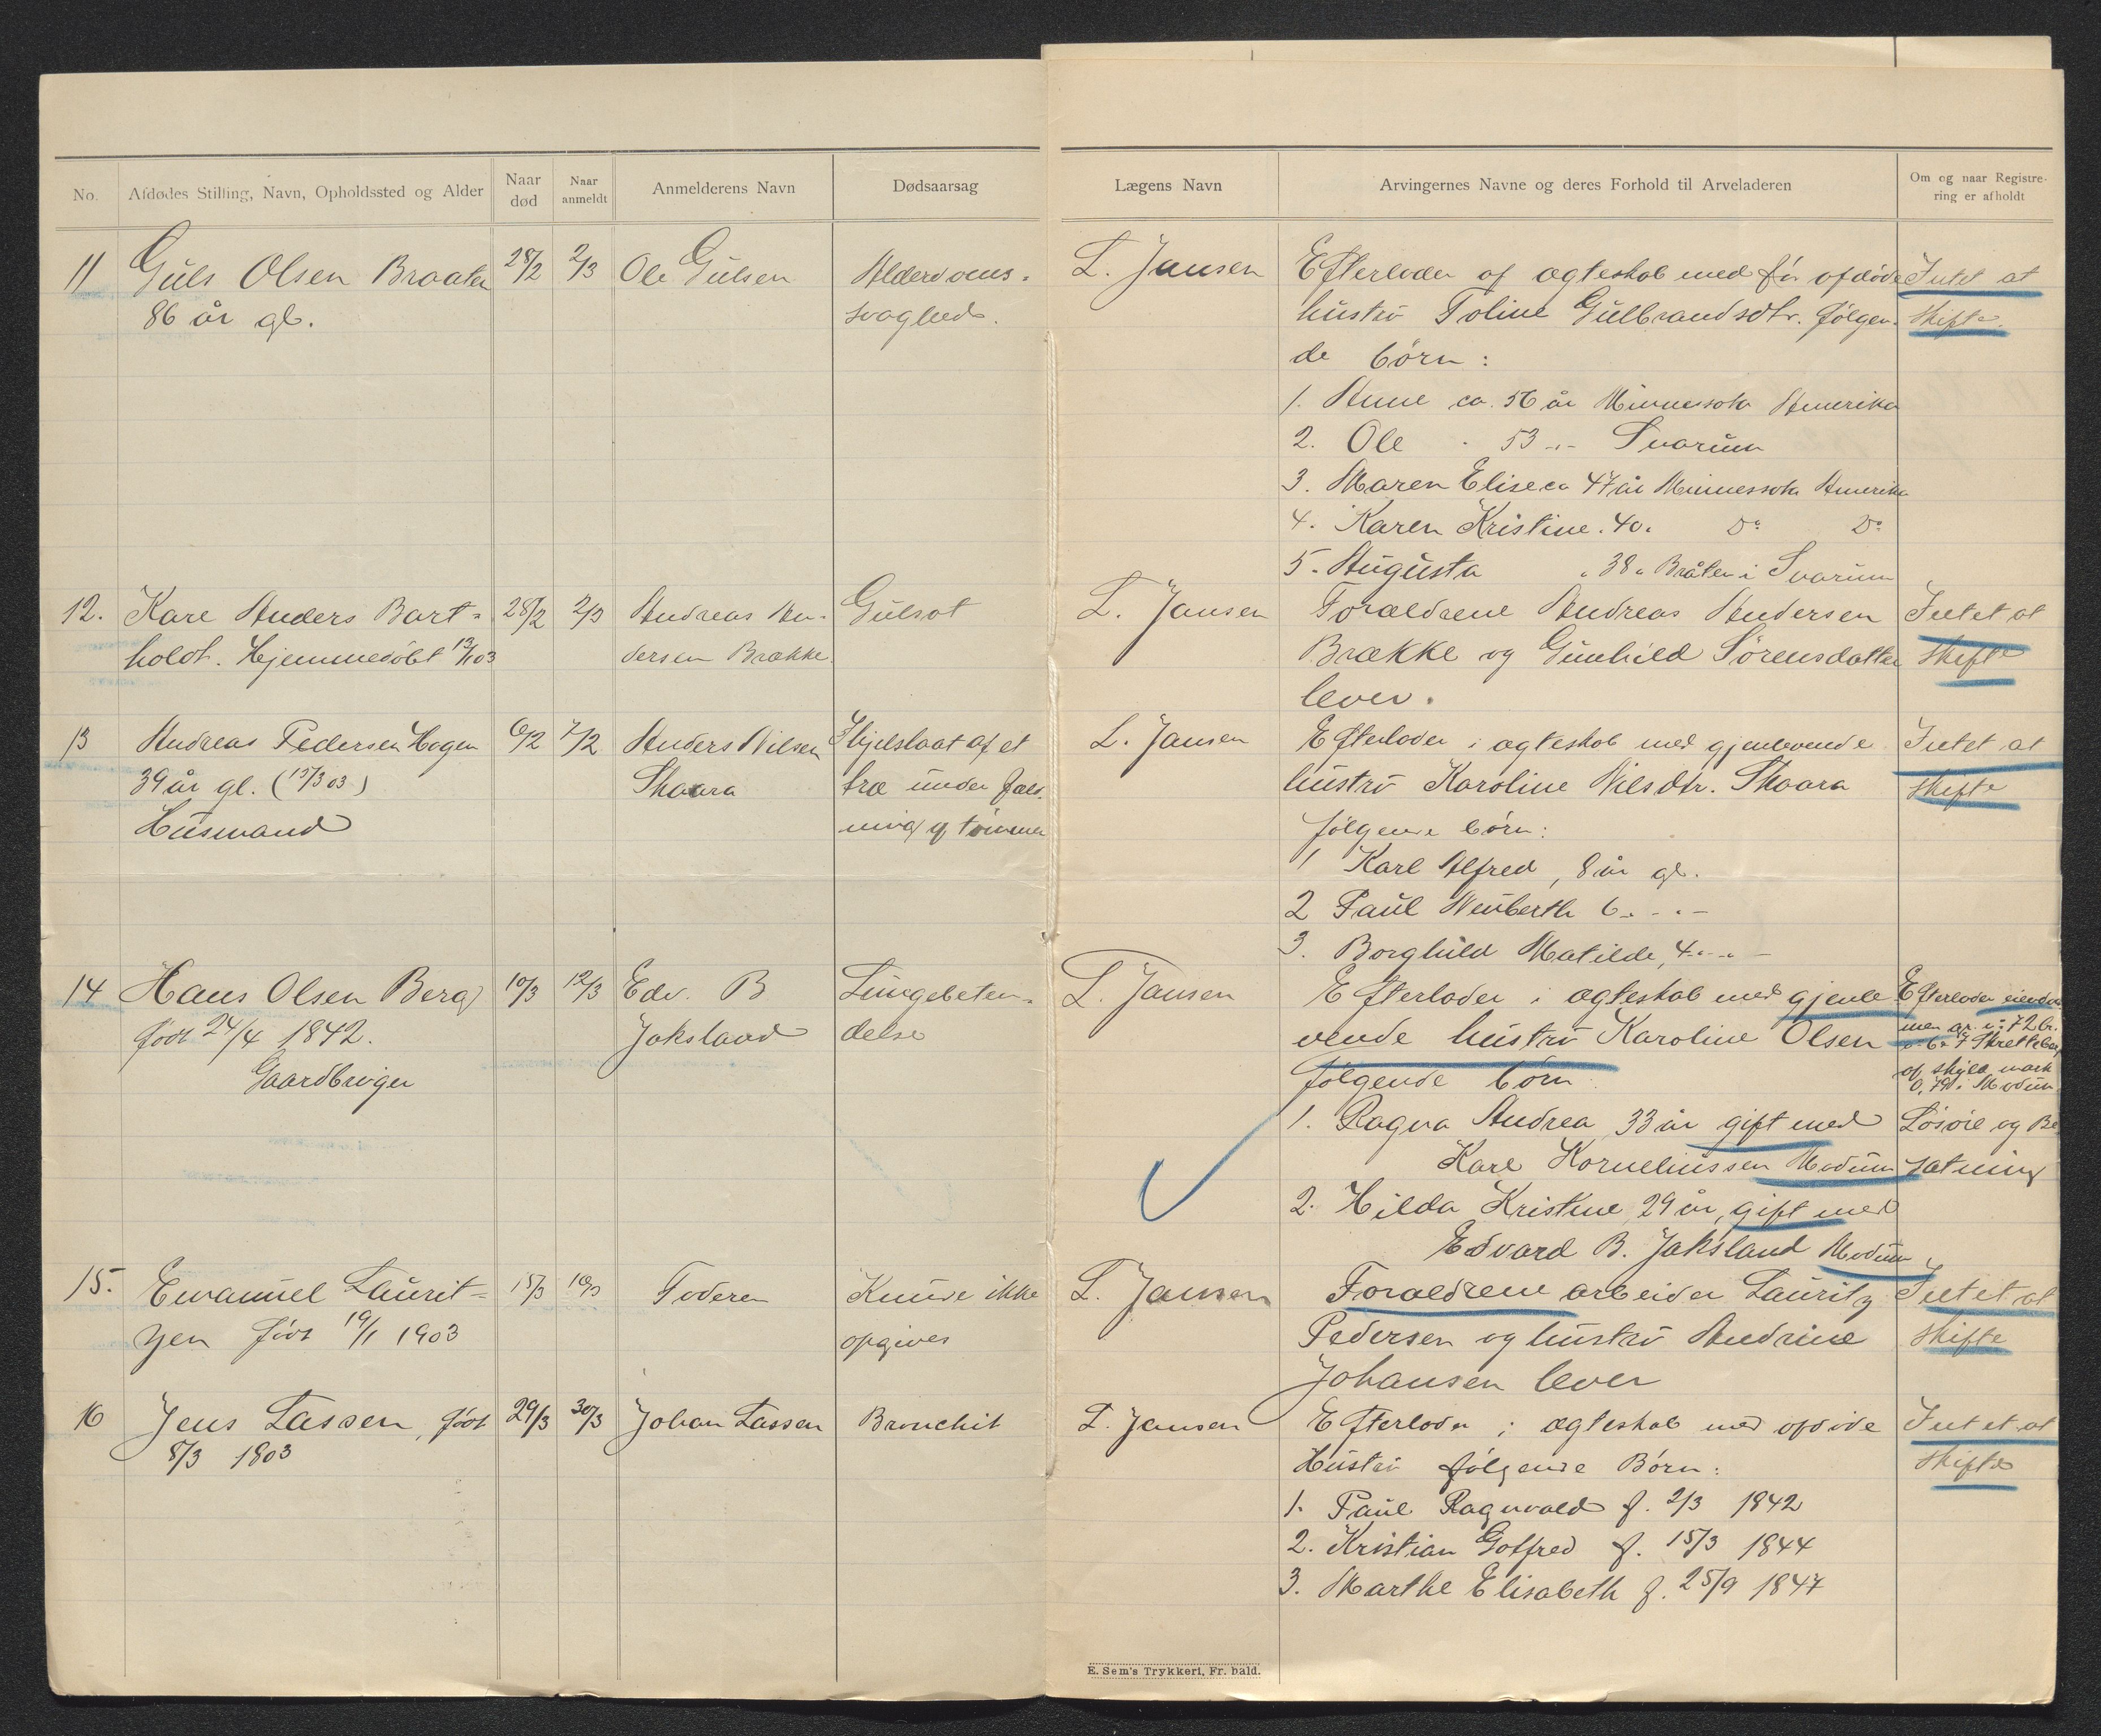 No.
Afdødes Stilling, Navn, Opholdssted og Alder
Naar død
Naar anmeldt
Anmelderens Navn
Dødsaarsag
Lægens Navn
Arvingernes Navne og deres Forhold til Arveladeren
Om og naar Registre-
ring er afholdt
11 Guls Olsen Braaten 28/2 2/3 Ole Gulsen Alderdoms-
86 år gl. svaghed.
L. Jansen Efterlader af ægteskab med før afdøde Intet at
hustru Toline Gulbrandsdtr. følgen- skifte.
de børn:
1. Anne ca. 56 år Minnesota Amerika
2. Ole " 53 " - Svarum
3. Maren Elise ca 47 år Minnesota Amerika
4. Karen Kristine " 40 " Do Do
5. Augusta " 38 " Bråten i Svarum
12. Karl Anders Bart- 28/2 2/3 Andreas An- Gulsot
holdt. Hjemmedøbt 13/1 03 dersen Brække.
L. Jansen Forældrene Andreas Andersen Intet at
Brække og Gunhild Sørensdatter skifte
lever.
13 Andreas Pedersen Hagen 6/2 7/2 Anders Nilsen Ihjelslaat af et
39 år gl. (15/3 03) Skaara træ under fæld-
Husmand ning af tømmer
L. Jansen Efterlader i ægteskab med gjenlevende Intet at
hustru Karoline Nilsdtr. Skaara skifte
følgende børn:
1 Karl Alfred, 8 år gl.
2 Paul Neuberth 6 " - " -
3. Borghild Matilde, 4 " - " -
14 Hans Olsen Berg 10/3 12/3 Edv. B Lungebeten-
født 24/4 1842. Jaksland delse
Gaardbruger
L. Jansen Efterlader i ægteskab med gjenle- Efterlader eiendom-
vende hustru Karoline Olsen men gr. n: 72 br.
følgende børn: 7 Skretteberg
af skyld mark
0,79 i Modum
1. Ragna Andrea 33 år gift med Løsøre og Be-
Karl Korneliussen Modum sætning
2. Hilda Kristine 29 år, gift med
Edvard B. Jaksland Modum
15. Emanuel Laurit- 15/3 Faderen Kunde ikke
zen født 19/1 1903 opgives
L. Jansen Forældrene arbeider Lauritz Intet at
Pedersen og hustru Andrine skifte
Johansen lever
16 Jens Lassen, født 29/3 30/3 Johan Lassen Bronchit
8/3 1803
L. Jansen Efterlader i ægteskab med afdøde Intet at
Hustru følgende Børn: skifte
1. Paul Ragnvald f. 2/3 1842
2. Kristian Gotfred f. 15/3 1844
3. Marthe Elisabeth f. 25/9 1847
E. Sem's Trykkeri, Fr. hald.